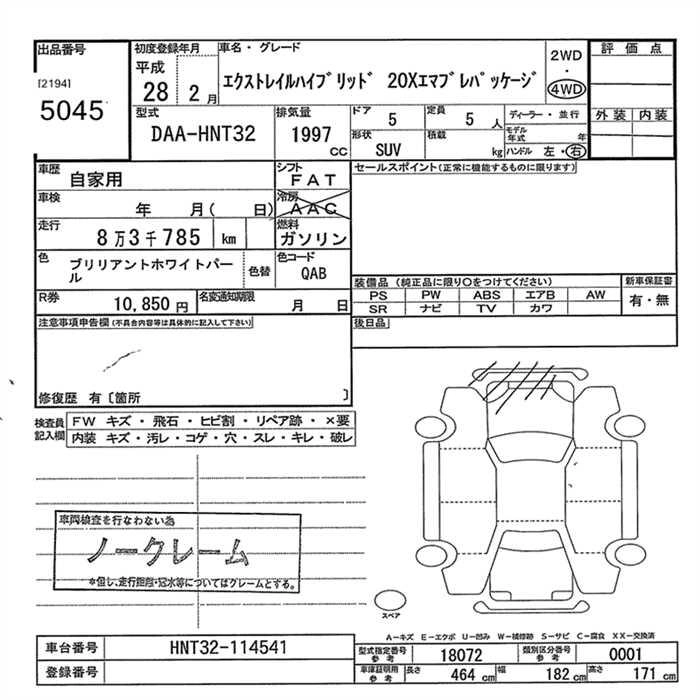 出品番号
[2194]
5045
初度登録年月
平成
28 2 月
車名・グレード
エクストレイルハイブリッド 20Xエマブレパッケージ
2WD
・
4WD
評価点
外装 内装
型式
DAA-HNT32
排気量
1997
CC
ドア
5
定員
5 人
形状
SUV
積載
kg
ディーラー・並行
モデル年式 年
ハンドル 左・右
車歴
自家用
シフト
FAT
車検
年 月( 日)
冷房
AAC
走行
8万3千785 km
燃料
ガソリン
色
ブリリアントホワイトパール
色替
色コード
QAB
R券
10,850 円
名変通知期限
月 日
セールスポイント(正常に機能するものに限ります)
装備品 (純正品に限り○をつけてください)
PS PW ABS エアB AW
SR ナビ TV カワ
新車保証書
有・無
後日品
注意事項申告欄(不具合内容等は具体的に記入して下さい)
修復歴 有〔箇所 〕
検査員記入欄
FW キズ・飛石・ヒビ割・リペア跡・×要
内装 キズ・汚レ・コゲ・穴・スレ・キレ・破レ
車両検査を行なわない為
ノークレーム
*但し、走行距離・冠水等についてはクレームとする。
スペア
A-キズ E-エクボ U-凹み W-補修跡 S-サビ C-腐食 XX-交換済
車台番号
HNT32-114541
登録番号
型式指定番号 参考
18072
類別区分番号 参考
0001
車庫証明用 参考
長さ 464 cm
幅 182 cm
高さ 171 cm